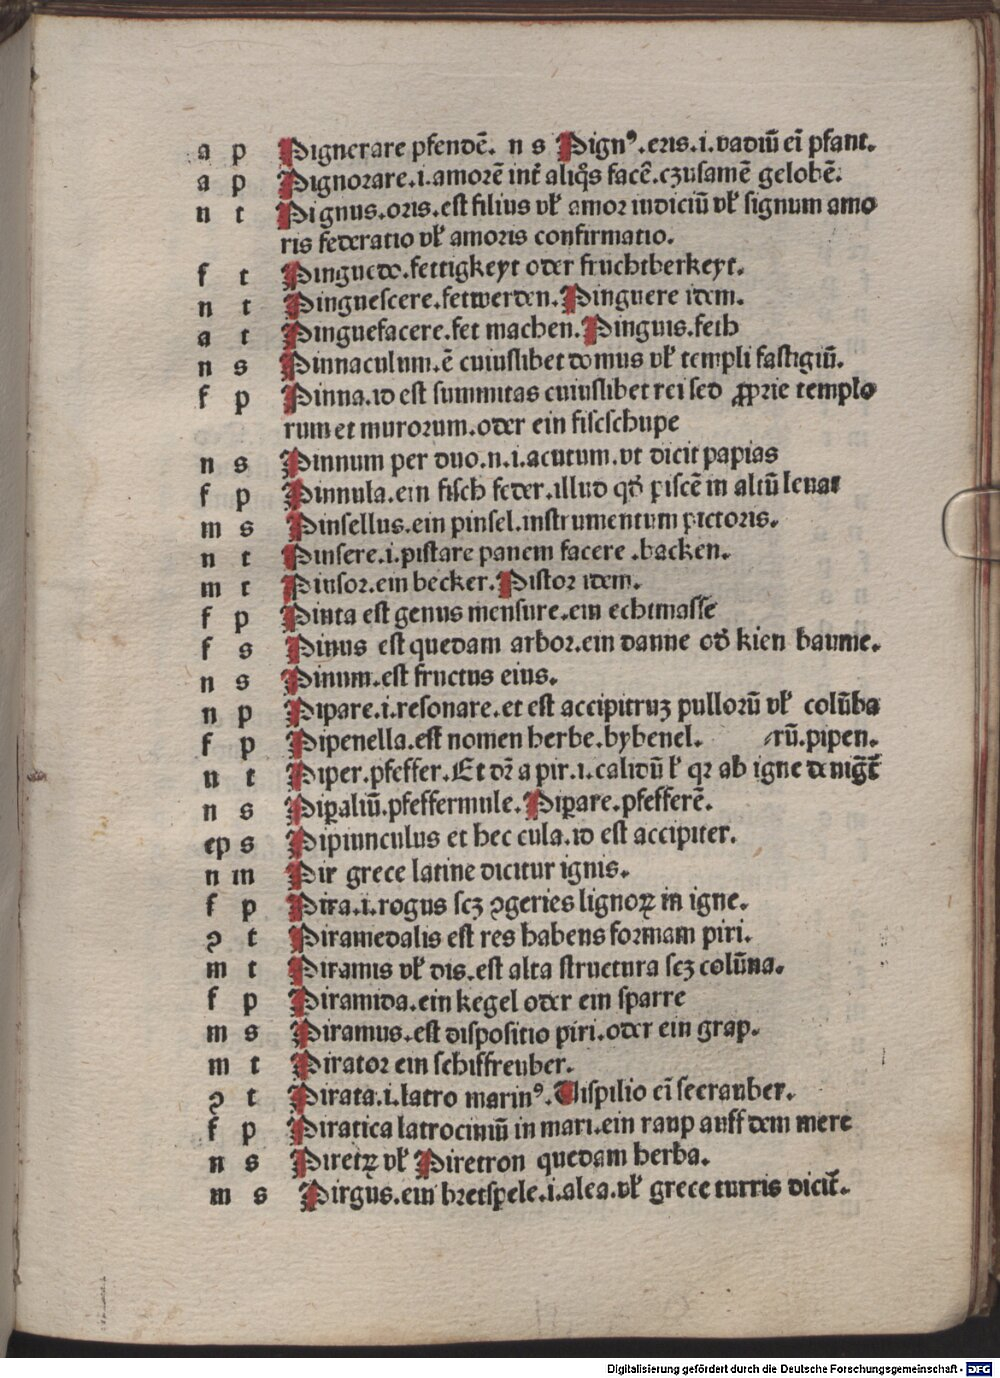 a p Pignerare pfendē. n s Pignꝰ.eris.i.vadiū eī pfant.
a p Pignorare.i.amorē int̄ aliq̄s facē.czusamē gelobē.
n t Pignus.oris.est filius vľ amor iudiciū vľ signum amo
ris federatio vľ amoris confirmatio.
f t Pinguedo.fettigkeyt oder fruchtberkeyt.
n t Pinguescere.fetwerden.Pinguere idem.
a t Pinguefacere.fet machen.Pinguis.feth
n s Pinnaculum.ē cuiuslibet domus vľ templi fastigiū.
f p Pinna.id est summitas cuiuslibet rei sed ꝓprie templo
rum et murorum.oder ein fischschupe
n s Pinnum per duo.n.i.acutum.vt dicit papias
f p Pinnula.ein fisch feder.illud qd̄ piscē in altū leuat
m s Pinsellus.ein pinsel.instrumentum pictoris.
n t Pinsere.i.pistare panem facere .backen.
m t Pinsor.ein becker.Pistor idem.
f p Pinta est genus mensure.ein echtmasse
f s Pinus est quedam arbor.ein danne od̄ kien baume.
n s Pinum.est fructus eius.
n p Pipare.i.resonare.et est accipitruꝫ pullorū vľ colūba
f p Pipenella.est nomen herbe.bybenel. rū.pipen.
n t Piper.pfeffer.Et dr̄ a pir.i.calidū ľ qꝛ ab igne de nigt̄
n s Piꝑaliū.pfeffermule.Piꝑare.pfefferē.
ep s Pipiunculus et hec cula.id est accipiter.
n m Pir grece latine dicitur ignis.
f p Pira.i.rogus scꝫ ꝯgeries lignoꝝ in igne.
ꝯ t Piramedalis est res habens formam piri.
m t Piramis vľ dis.est alta structura scꝫ colūna.
f p Piramida.ein kegel oder ein sparre
m s Piramus.est dispositio piri.oder ein grap.
m t Pirator ein schiffreuber.
ꝯ t Pirata.i.latro marinꝰ.Dispilio eī seerauber.
f p Piratica latrociniū in mari.ein raup auff dem mere
n s Piretꝝ vľ Piretron quedam herba.
m s Pirgus.ein bretspele.i.alea.vľ grece turris dicit̄.
Digitalisierung gefördert durch die Deutsche Forschungsgemeinschaft - DFG